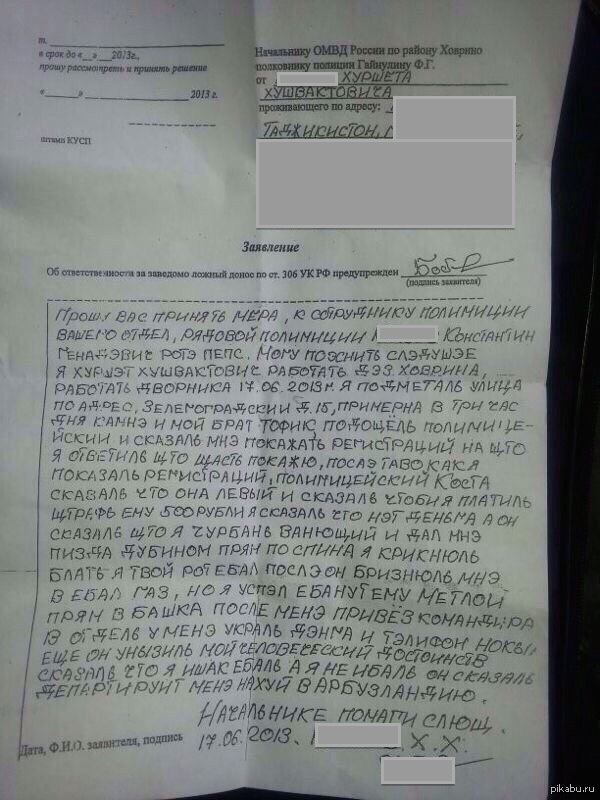 т.
в срок до «__» __ 2013г.,
прошу рассмотреть и принять решение
«______» 2013 г.
штамп КУСП
Начальнику ОМВД России по району Ховрино
полковнику полиции Гайнулину Ф.Г.
от ХУРШЕТА
ХУШВАКТОВИЧА
проживающего по адресу:
ТАДЖИКИСТОН,
Заявление
Об ответственности за заведомо ложный донос по ст. 306 УК РФ предупрежден
(подпись заявителя)
ПРОШУ ВАС ПРИНЯТЬ МЕРА, К СОТРУДНИКУ ПОЛИМИЦИИ
ВАШЕГО ОТДЕЛ, РЯДОВОЙ ПОЛИМИЦИИ КОНСТАНТИН
ГЕНАДЭВИЧ РОТЭ ПЕПС. МОМУ ПОЯСНИТЬ СЛЭДУШЭЕ
Я ХУРШЭТ ХУШВАКТОВИЧ РАБОТАТЬ ДЭЗ ХОВРИНА,
РАБОТАТЬ ДВОРНИКА 17.06.2013М. Я ПОДМЕТАЛЬ УЛИЦА
ПО АДРЕС, ЗЕЛЕМОГРАДСКИЙ Д.15, ПРИМЕРНА В ТРИ ЧАС
ДНЯ КАМНЭ И МОЙ БРАТ ТОФИК ПОДОЩЕЛЬ ПОЛИМИЦЕ-
ЙСКИЙ И СКАЗАЛЬ МНЭ ПОКАЖАТЬ РЕГИСТРАЦИЙ НА ЩТО
Я ОТВЕТИЛЬ ЩТО ЩАСТЬ ПОКАЖЮ, ПОСЛЭ ТАВО КАК Я
ПОКАЗАЛЬ РЕМИСТРАЦИЙ, ПОЛИМИЦЕЙСКИЙ КОСТА
СКАЗАЛЬ ЧТО ОНА ЛЕВЫЙ И СКАЗАЛЬ ЧТОБИ Я ПЛАТИЛЬ
ЩТРАФЬ ЕМУ 500 РУБЛИ Я СКАЗАЛЬ ЧТО НЭТ ДЕНЬМА А ОН
СКАЗАЛЬ ЩТО Я ЧУРБАНЬ ВАНЮЮЩИЙ И ДАЛ МНЭ
ПИЗДА ДУБИНОМ ПРЯМ ПО СПИНА Я КРИКНЮЛЬ
БЛАТЬ Я ТВОЙ РОТ ЕБАЛ ПОСЛЭ ОН БРИЗНЮЛЬ МНЭ
В ЕБАЛ ГАЗ, НО Я УСПЭЛ ЕБАНУТ ЕМУ МЕТЛОЙ
ПРЯМ В БАШКА ПОСЛЕ МЕНЭ ПРИВЁЗ КОМАНДИРА
В ОТДЕЛЬ У МЕНЭ УКРАЛЬ ДЭНМА И ТЭЛИФОН НОКЫ
ЕЩЕ ОН УНЫЗИЛЬ МОЙ ЧЕЛОВЕЧЕСКИЙ ДОСТОИНСТВ
СКАЗАЛЬ ЧТО Я ИШАК ЕБАЛЬ А Я НЕ ИБАЛЬ ОН СКАЗАЛЬ
ДЕПАРТИРУИТ МЕНЭ НАХУЙ В АРБУЗЛАНДИЮ.
НАЧАЛЬНИКЕ ПОМАГИ СЛЮЩ.
Дата, Ф.И.О. заявителя, подпись
17.06.2013. Х.Х.
pikabu.ru